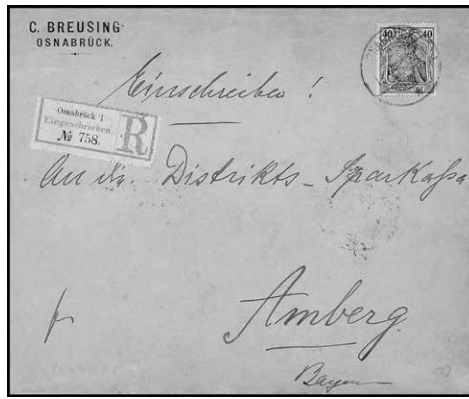 C. BREUSING
OSNABRÜCK.
40 40
Einschreiben!
Osnabrück 1
Eingeschrieben.
№ 758.
R
An die Distrikts-Sparkassa
Amberg
Bayern